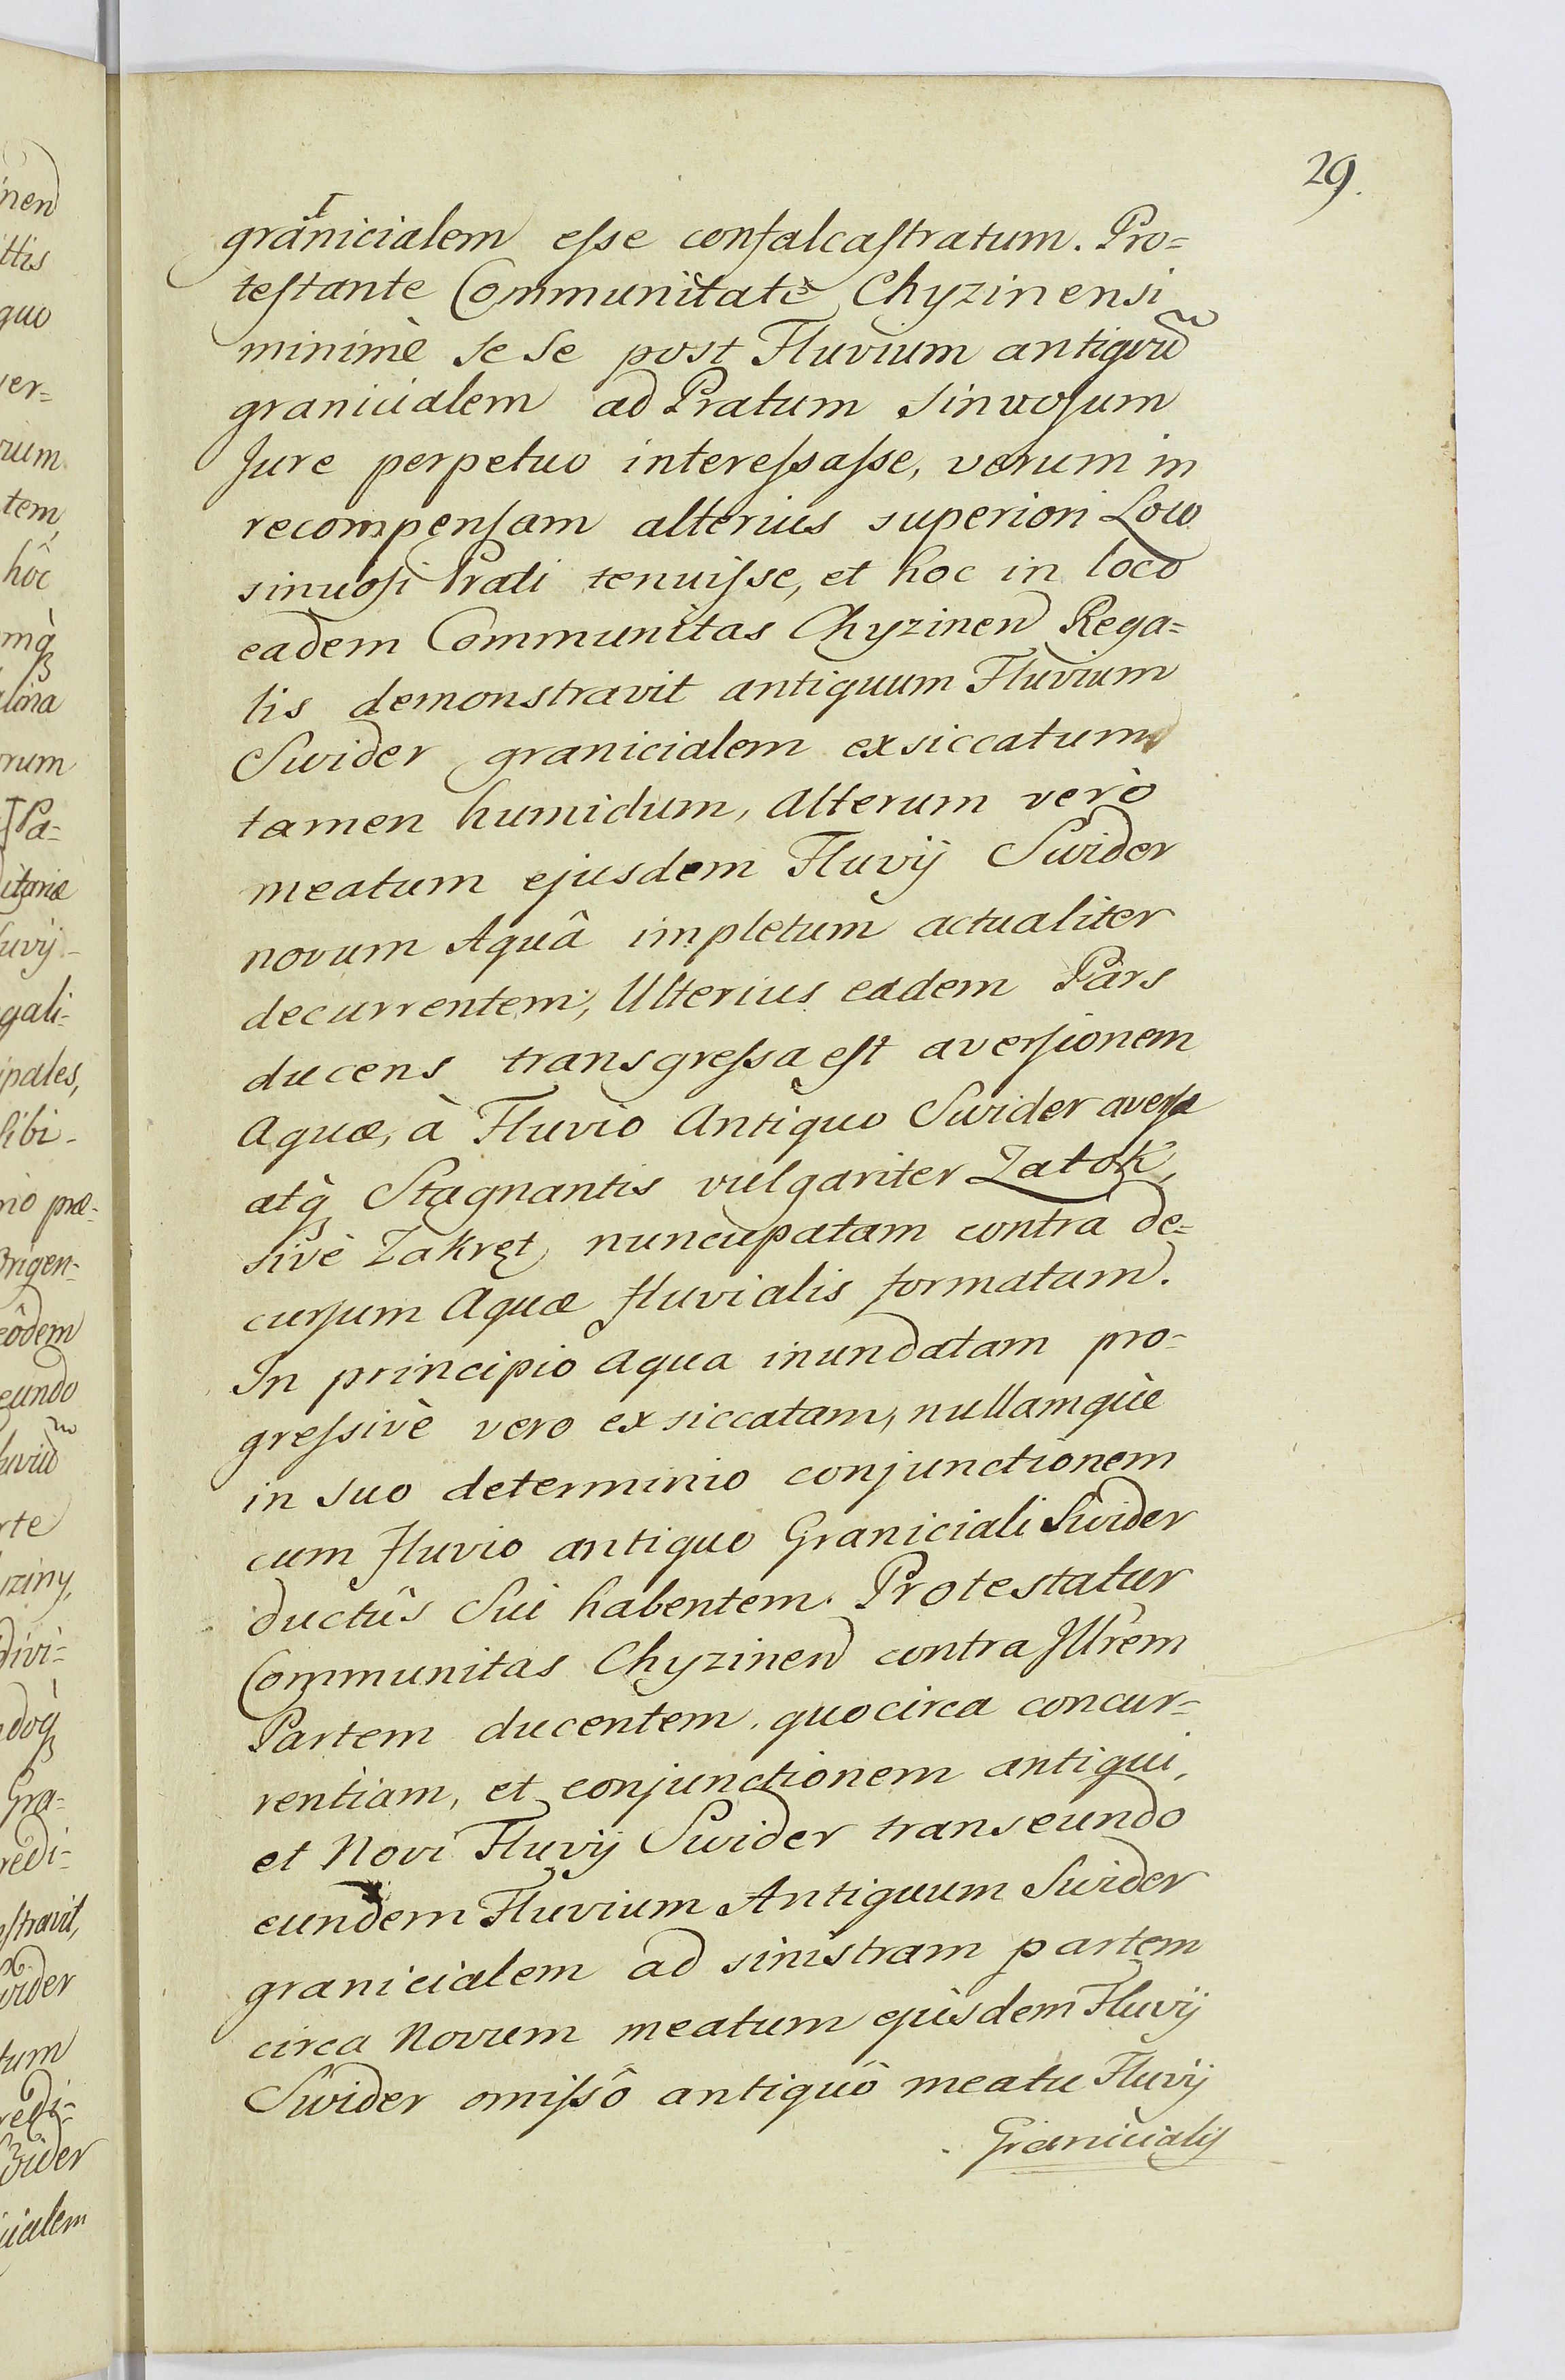 29.
granicialem eſse confalcaſtratum. Pro=
teſtante Communitatè Chyzinensi
minimè se se post Fluvium antiquũ
granicialem ad Pratum sinuoſum
Jure perpetuo intereſsaſse, verum in
recompenſam alterius superiori Loco
sinuoſi Prati tenuiſse, et hoc in loco
eadem Communitas Chyzinen Rega=
lis demonstravit antiquum Fluvium
Swider granicialem exsiccatum
tamen humidum, alterum verò
meatum ejusdem Fluvij Swider
novum Aquâ impletum actualiter
decurrentem; Ulterius eadem Pars
ducens transgreſsa eſt averſionem
Aquæ, à Fluvio Antiquo Swider averſæ
atq̀ Stagnantis vulgariter Zatok,
sivè Zakręt, nuncupatam contra de=
curſum Aquæ fluvialis formatam.
In principio aqua inundatam pro-
greſsivè vero exsiccatam, nullamqùe
in suo determinio conjunctionem
cum fluvio antiquo Graniciali Swider
ductûs Sui habentem. Protestatur
Communitas Chyzinen contra Jllrem
Partem ducentem, quocirca concur=
rentiam, et conjunctionem antiqui,
et Novi Fluvij Swider transeundo
eundem Fluvium Antiquum Swider
granicialem ad sinistram partem
circa Novum meatum ejusdem Fluvij
Swider omiſsô antiquô meatu Fluvij
Granicialis
nen
ittis
quo
ver=
rium
tem,
hôc
mq̀
alina
rum
Pa=
litariæ
luvij -
gali=
ipales,
sibi -
rio præ=
Origen=
eôdem
eundo
luviũ
rte
ziny,
divi=
doq̀
Gra=
redi=
ſtravit,
wider
tum
redi=
wider
icialem